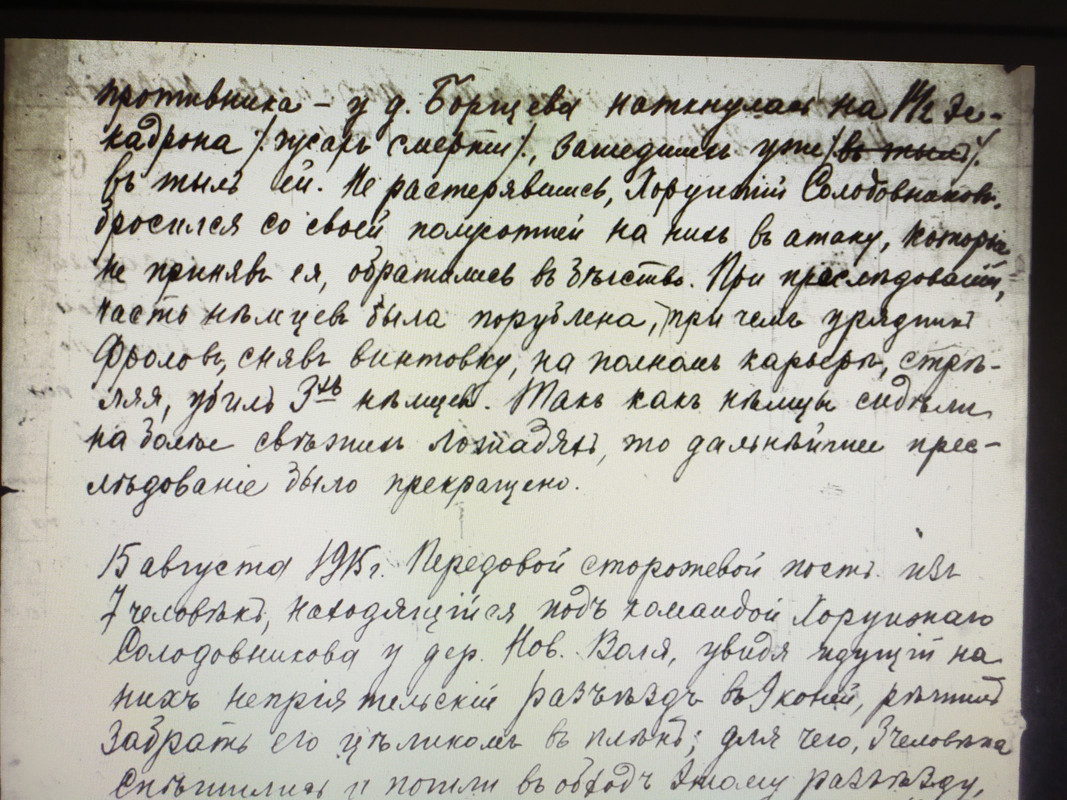 противника – у д. Борщева наткнулась на 1½ эс-
кадрона /: гусаръ смерти :/, зашедшихъ уже /: въ тылъ :/
въ тылъ ей. Не растерявшись, Хорунжій Солодовниковъ,
бросился со своей полусотней на нихъ въ атаку, которые
не принявъ ея, обратились въ бѣгство. При преслѣдованіи,
часть нѣмцевъ была порублена, при чемъ урядникъ
Фроловъ, снявъ винтовку, на полномъ карьерѣ, стрѣ-
ляя, убилъ 3хъ нѣмцевъ. Такъ какъ нѣмцы сидѣли
на болѣе свѣжихъ лошадяхъ, то дальнѣйшее прес-
лѣдованіе было прекращено.
15 августа 1915 г. Передовой сторожевой постъ изъ
7 человѣкъ, находящійся подъ командой Хорунжаго
Солодовникова у дер. Нов. Воля, увидя идущій на
нихъ непріятельскій разъѣздъ въ 9 коней, рѣшилъ
забрать его цѣликомъ въ плѣнъ; для чего, 3 человѣка
спѣшились и пошли въ обходъ этому разъѣзду,